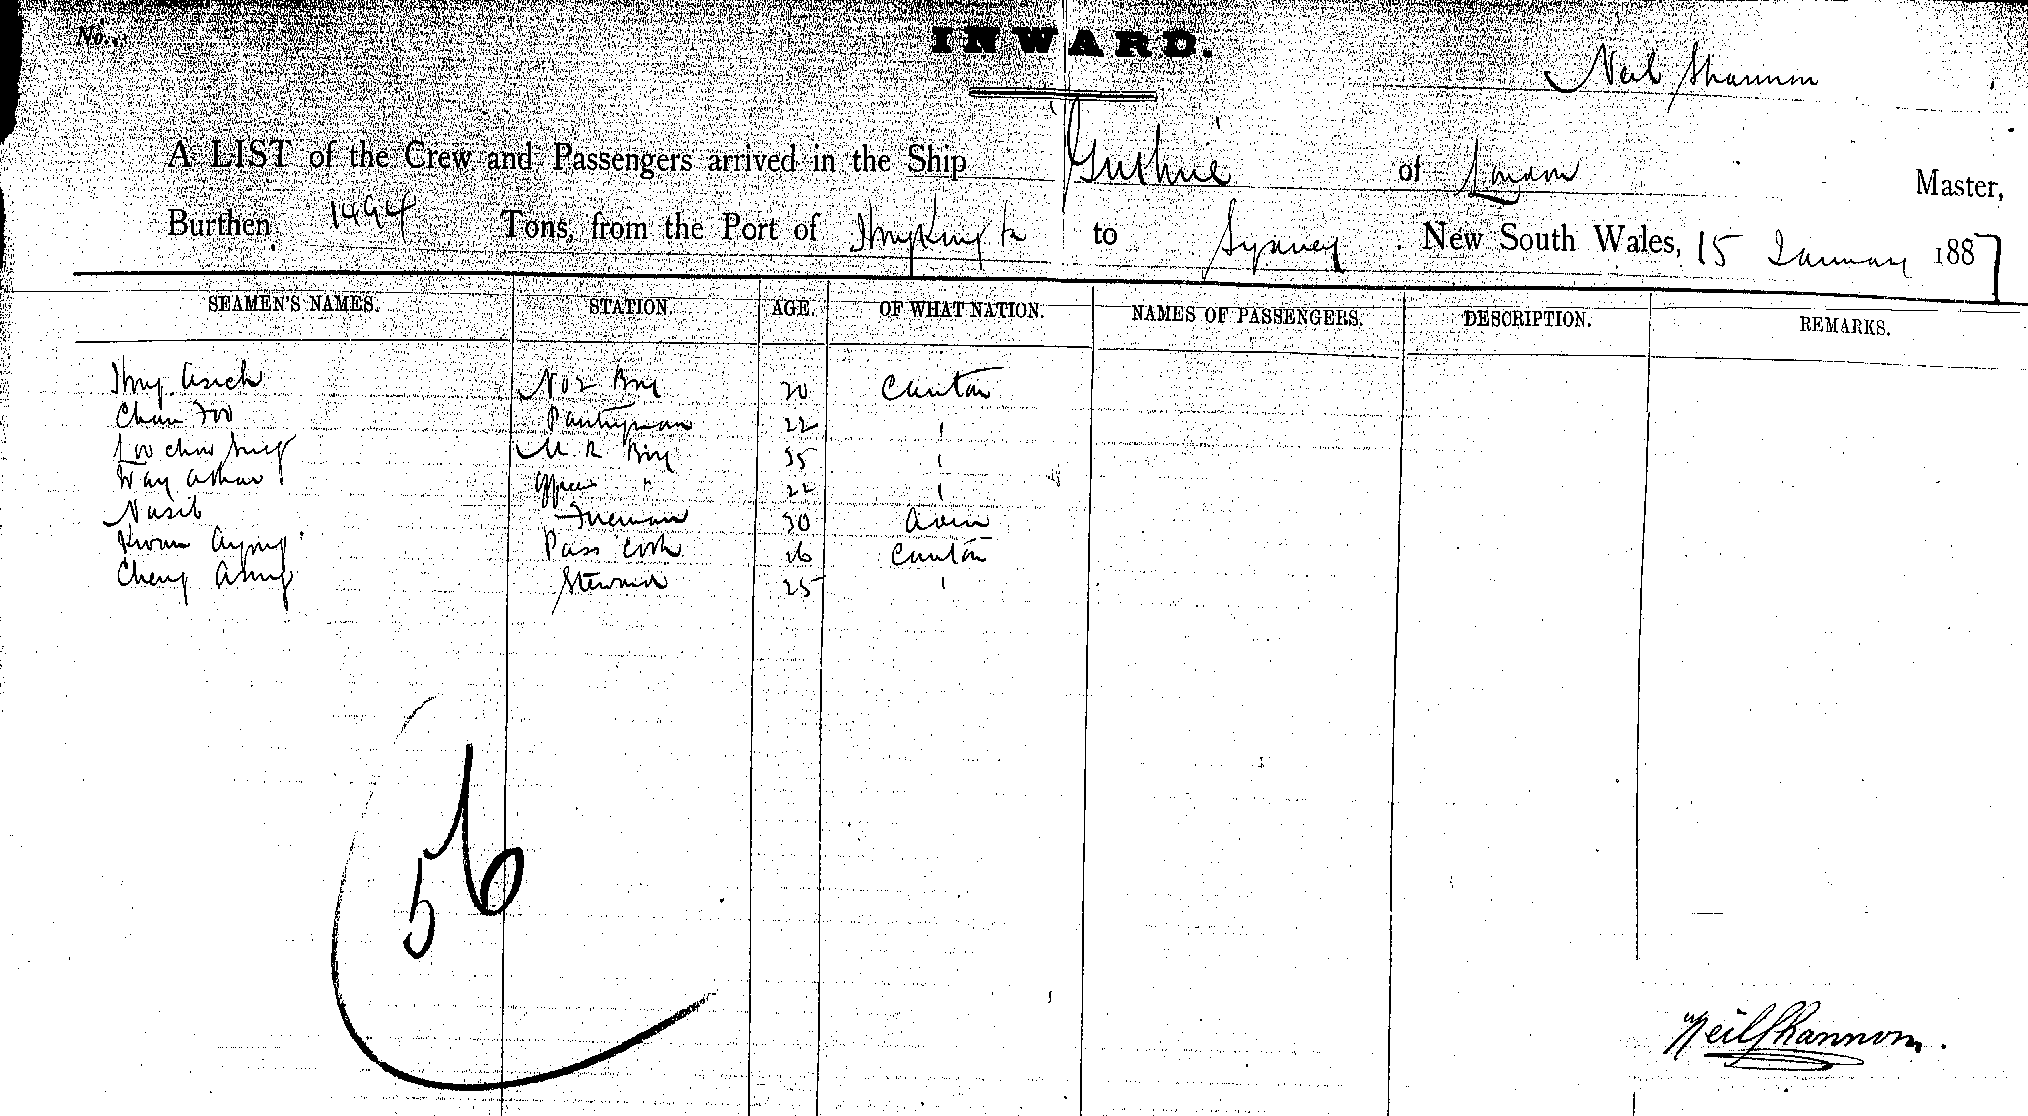 No.
INWARD.
Neil Shannon
A LIST of the Crew and Passengers arrived in the Ship Guthrie of London Master,
Burthen 1494 Tons, from the Port of Hong Kong to Sydney New South Wales, 15 January 1887
SEAMEN'S NAMES. STATION. AGE. OF WHAT NATION. NAMES OF PASSENGERS. DESCRIPTION. REMARKS.
No 2 Boy 20 Canton
Chan Foo Pantryman 22 "
M. R. Boy 35 "
22 "
Nasib Fireman 30 Aden
Kwan Ayong Pass Cook 26 Canton
Cheng Steward 25 "
56
Neil Shannon.